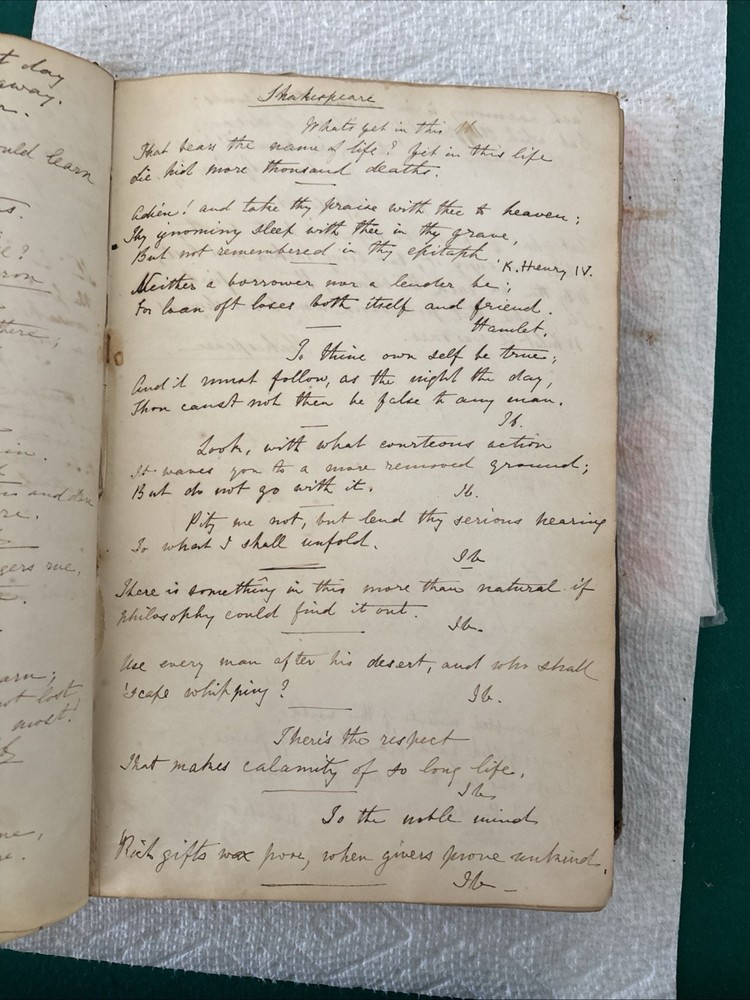 t day
away.
ould learn
there;
in.
and
re.
gers me,
arn;
not lost
most!
me,
Shakespeare
What's yet in this
That bears the name of life? Yet in this life
Lie hid more thousand deaths.
Adieu! and take thy praise with thee to heaven;
Thy ignominy sleep with thee in the grave,
But not remembered in thy epitaph.
K. Henry IV.
Neither a borrower nor a lender be;
For loan oft loses both itself and friend.
Hamlet.
To thine own self be true;
And it must follow, as the night the day,
Thou canst not then be false to any man.
Ib.
Look, with what courteous action
It waves you to a more removed ground;
But do not go with it.
Ib.
Pity me not, but lend thy serious hearing
To what I shall unfold.
Ib
There is something in this more than natural if
philosophy could find it out.
Ib.
Use every man after his desert, and who shall
'scape whipping?
Ib.
There's the respect
That makes calamity of so long life.
Ib.
To the noble mind
Rich gifts wax poor, when givers prove unkind.
Ib